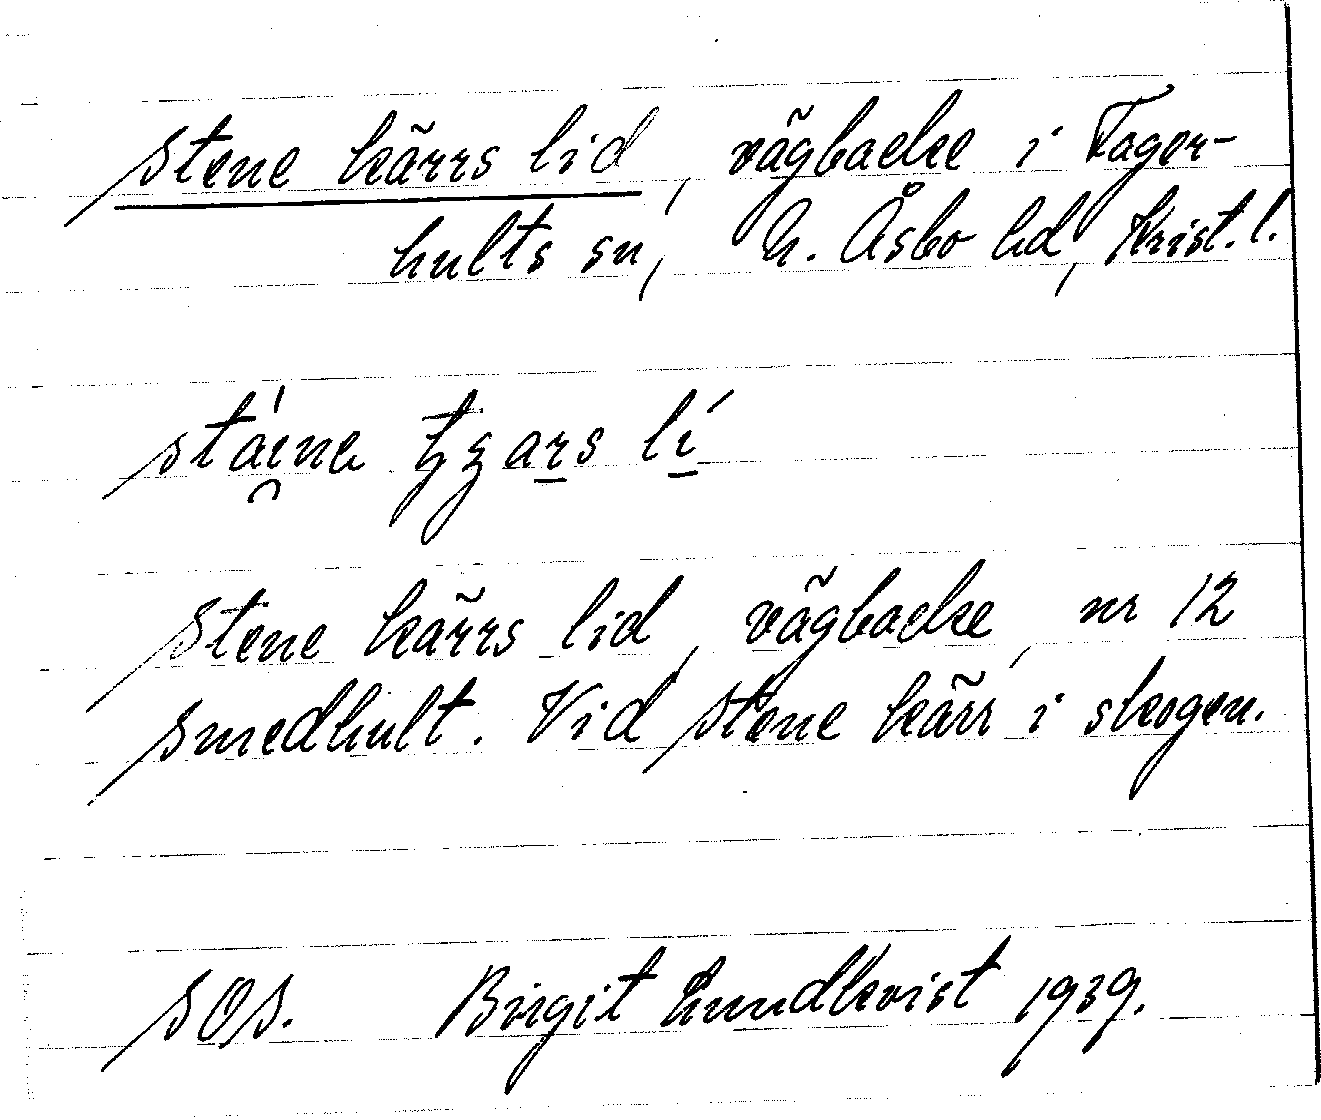 Stene kärrs lid, vägbacke i Fager-
hults sn, N. Åsbo hd, Krist. l.
Stene kärrs lid, vägbacke, nr 12
Smedhult. Vid Stene kärr i skogen.
SOS. Birgit Lundkvist 1939.